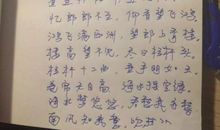 忆郎郎不至，仰首望飞鸿
鸿飞满西洲，望郎上青楼
楼高望不见，尽日栏杆头
栏杆十二曲，垂手明如玉
卷帘天自高，海水摇空绿
海水梦悠悠，君愁我亦愁
南风知我意，吹梦到